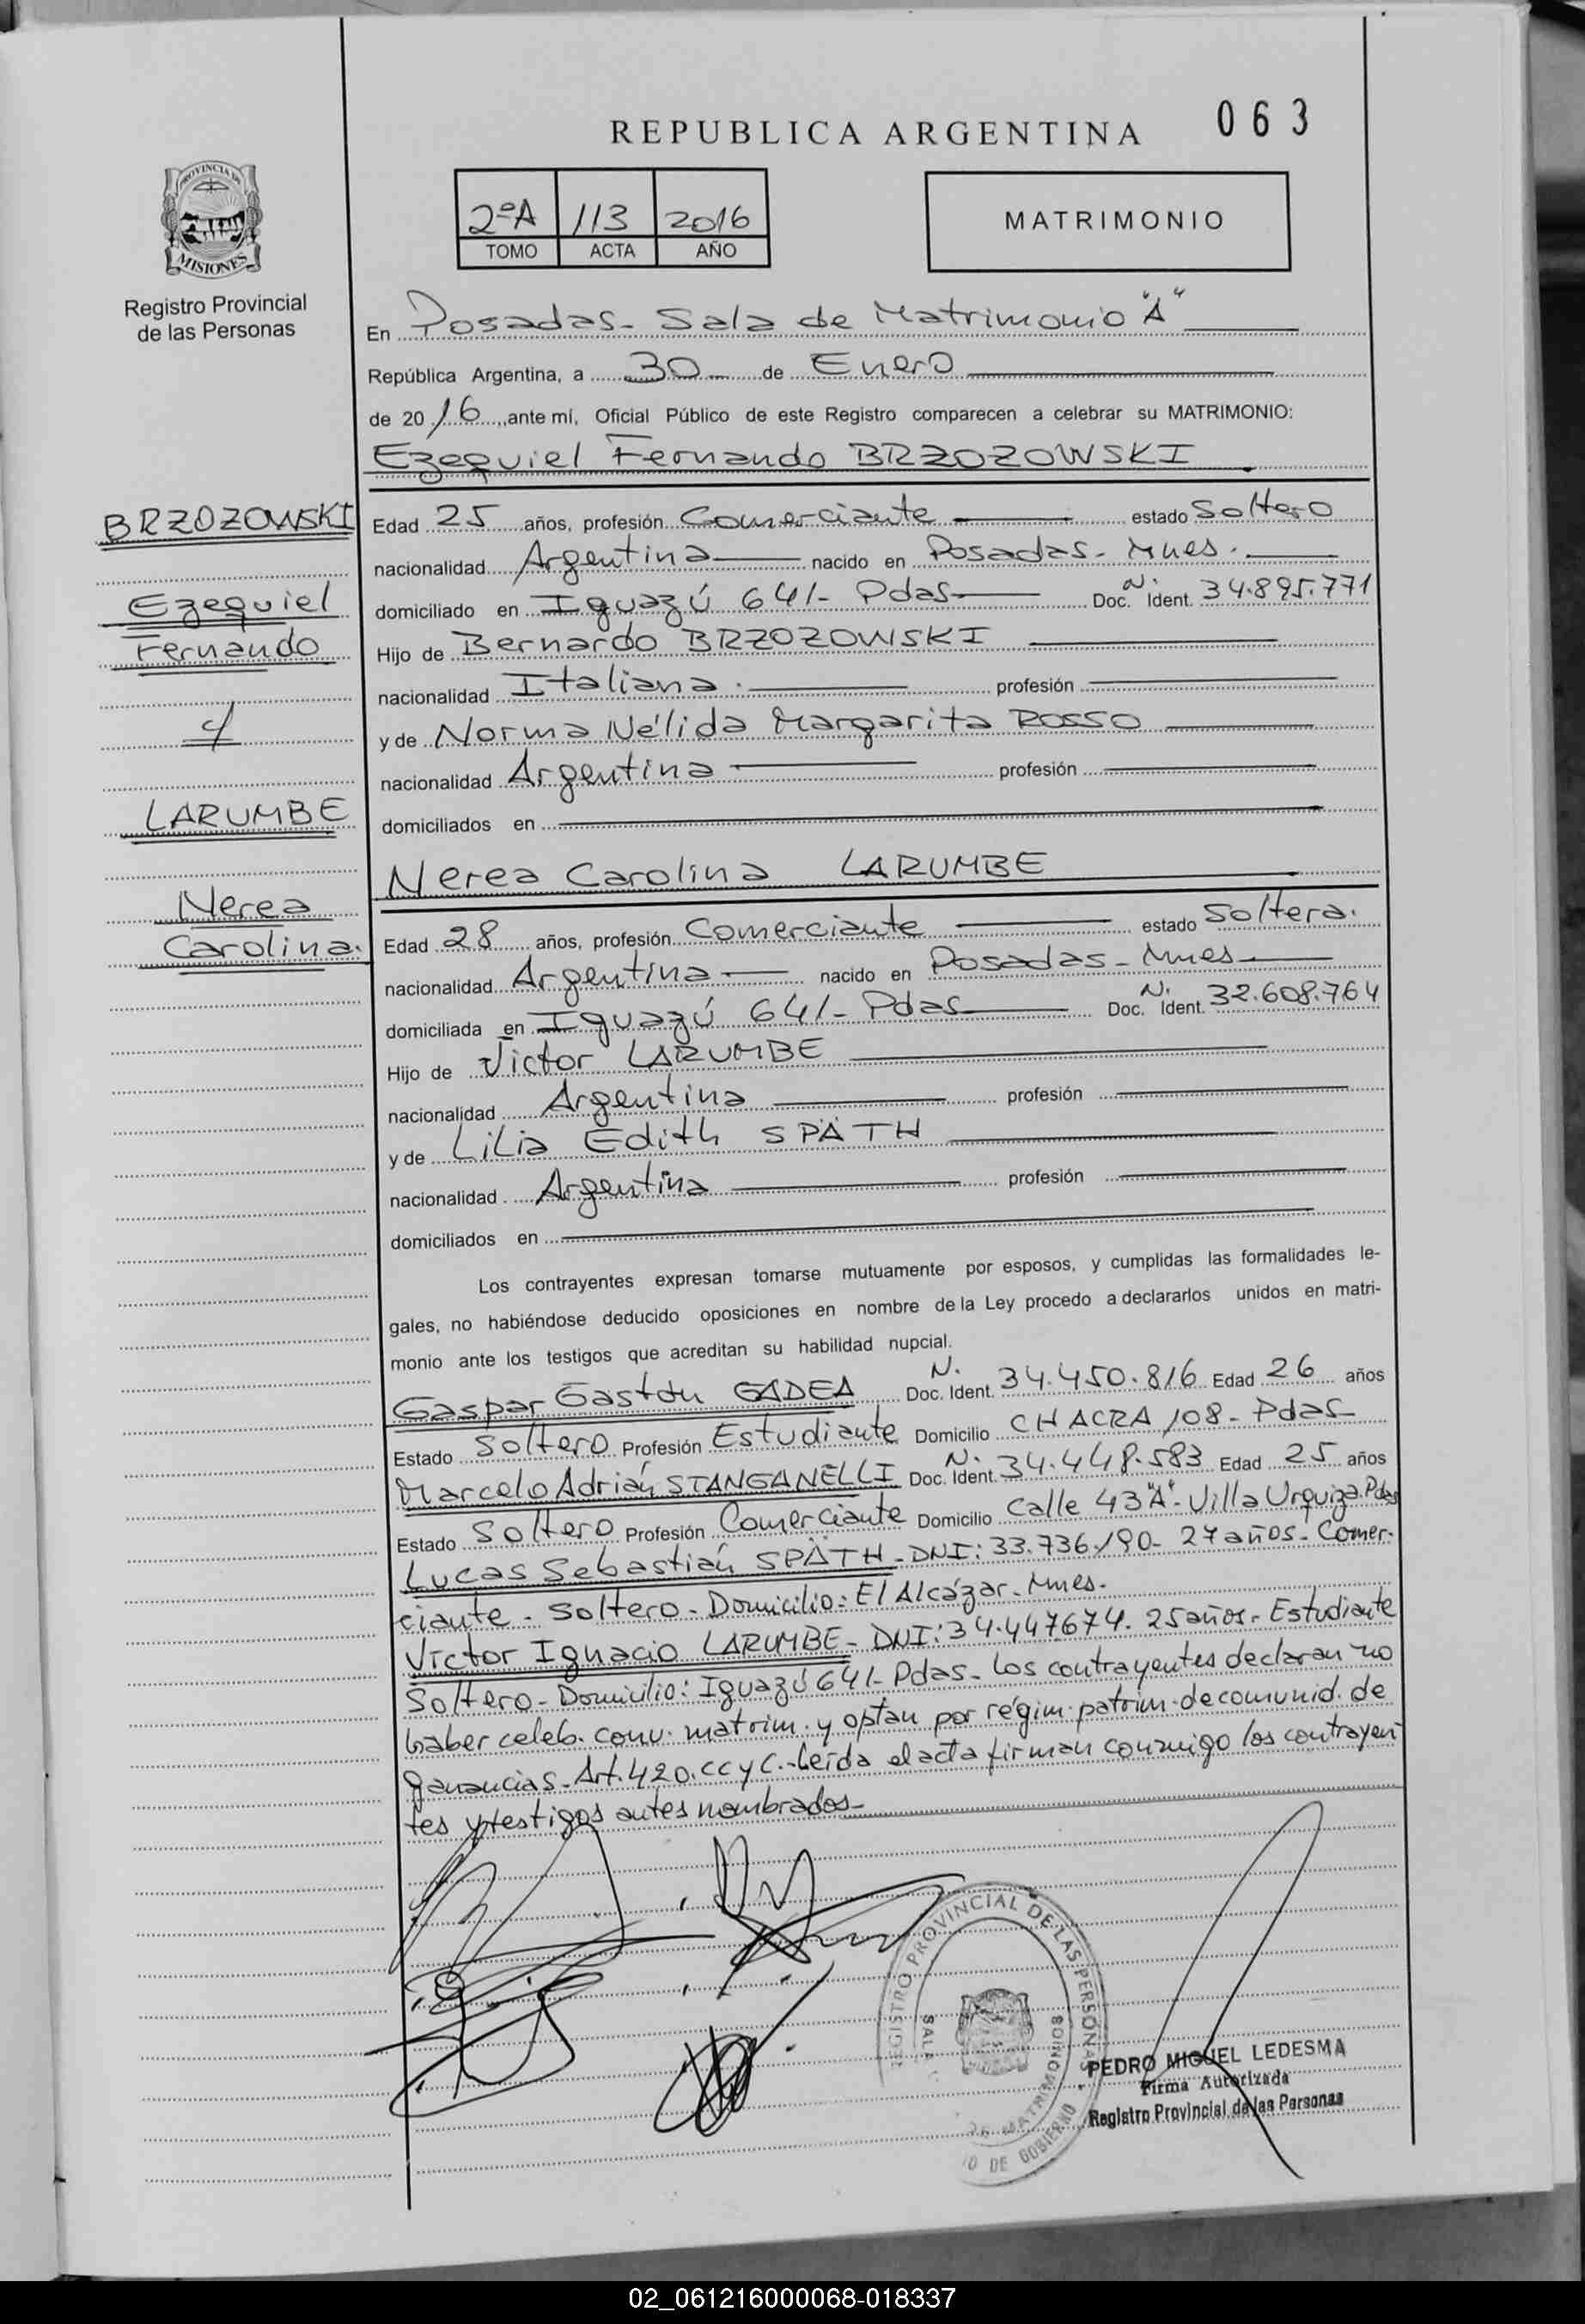 063
REPUBLICA ARGENTINA
PROVINCIA DE
MISIONES
Registro Provincial
de las Personas
2ºA 113 2016
TOMO ACTA AÑO
MATRIMONIO
En Posadas - Sala de Matrimonio "A"
República Argentina, a 30 de Enero
de 2016, ante mí, Oficial Público de este Registro comparecen a celebrar su MATRIMONIO:
Ezequiel Fernando BRZOZOWSKI
BRZOZOWSKI
Ezequiel
Fernando
c/
LARUMBE
Nerea
Carolina.
Edad 25 años, profesión Comerciante estado Soltero
nacionalidad Argentina nacido en Posadas - Mnes.
domiciliado en Iguazú 641 - Pdas Doc. N. Ident. 34.895.771
Hijo de Bernardo BRZOZOWSKI
nacionalidad Italiana. profesión
y de Norma Nélida Margarita ROSSO
nacionalidad Argentina profesión
domiciliados en
Nerea Carolina LARUMBE
Edad 28 años, profesión Comerciante estado Soltera.
nacionalidad Argentina nacido en Posadas - Mnes
domiciliada en Iguazú 641 - Pdas Doc. N. Ident. 32.608.764
Hijo de Victor LARUMBE
nacionalidad Argentina profesión
y de Lilia Edith SPÄTH
nacionalidad Argentina profesión
domiciliados en
Los contrayentes expresan tomarse mutuamente por esposos, y cumplidas las formalidades le-
gales, no habiéndose deducido oposiciones en nombre de la Ley procedo a declararlos unidos en matri-
monio ante los testigos que acreditan su habilidad nupcial.
Gaspar Gastón GADEA Doc. N. Ident. 34.450.816 Edad 26 años
Estado Soltero Profesión Estudiante Domicilio CHACRA 108 - Pdas
Marcelo Adrián STANGANELLI Doc. N. Ident. 34.448.583 Edad 25 años
Estado Soltero Profesión Comerciante Domicilio Calle 43 "A" - Villa Urquiza. Pdas
Lucas Sebastián SPÄTH - DNI: 33.736.190 - 27 años - Comer-
ciante - Soltero - Domicilio: El Alcázar - Mnes.
Victor Ignacio LARUMBE - DNI: 34.447674. 25 años - Estudiante
Soltero - Domicilio: Iguazú 641 - Pdas - Los contrayentes declaran no
haber celeb. conv. matrim. y optan por régim. patrim. de comunid. de
ganancias - Art. 420. CC y C. - Leída el acta firman conmigo los contrayen-
tes y testigos antes nombrados -
REGISTRO PROVINCIAL DE LAS PERSONAS
SALA DE MATRIMONIOS
DE GOBIERNO
PEDRO MIGUEL LEDESMA
Firma Autorizada
Registro Provincial de las Personas
02_061216000068-018337